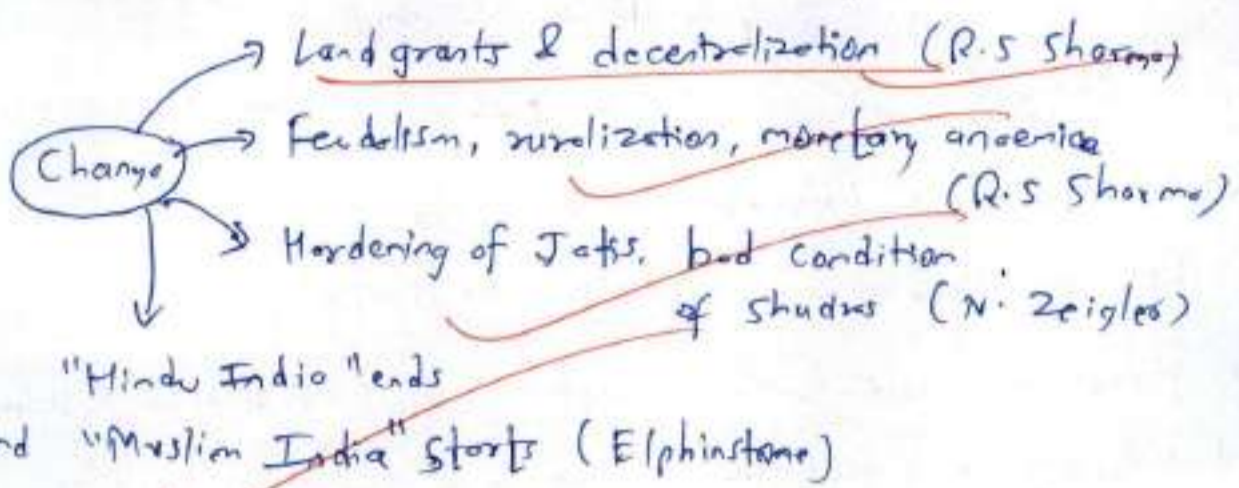 Land grants & decentralization (R.S Sharma)
Change
Feudalism, ruralization, monetary anaemia
(R.S Sharma)
Hardening of Jatis, bad condition
of Shudras (N. Zeigler)
"Hindu India" ends
nd "Muslim India" starts (Elphinstone)